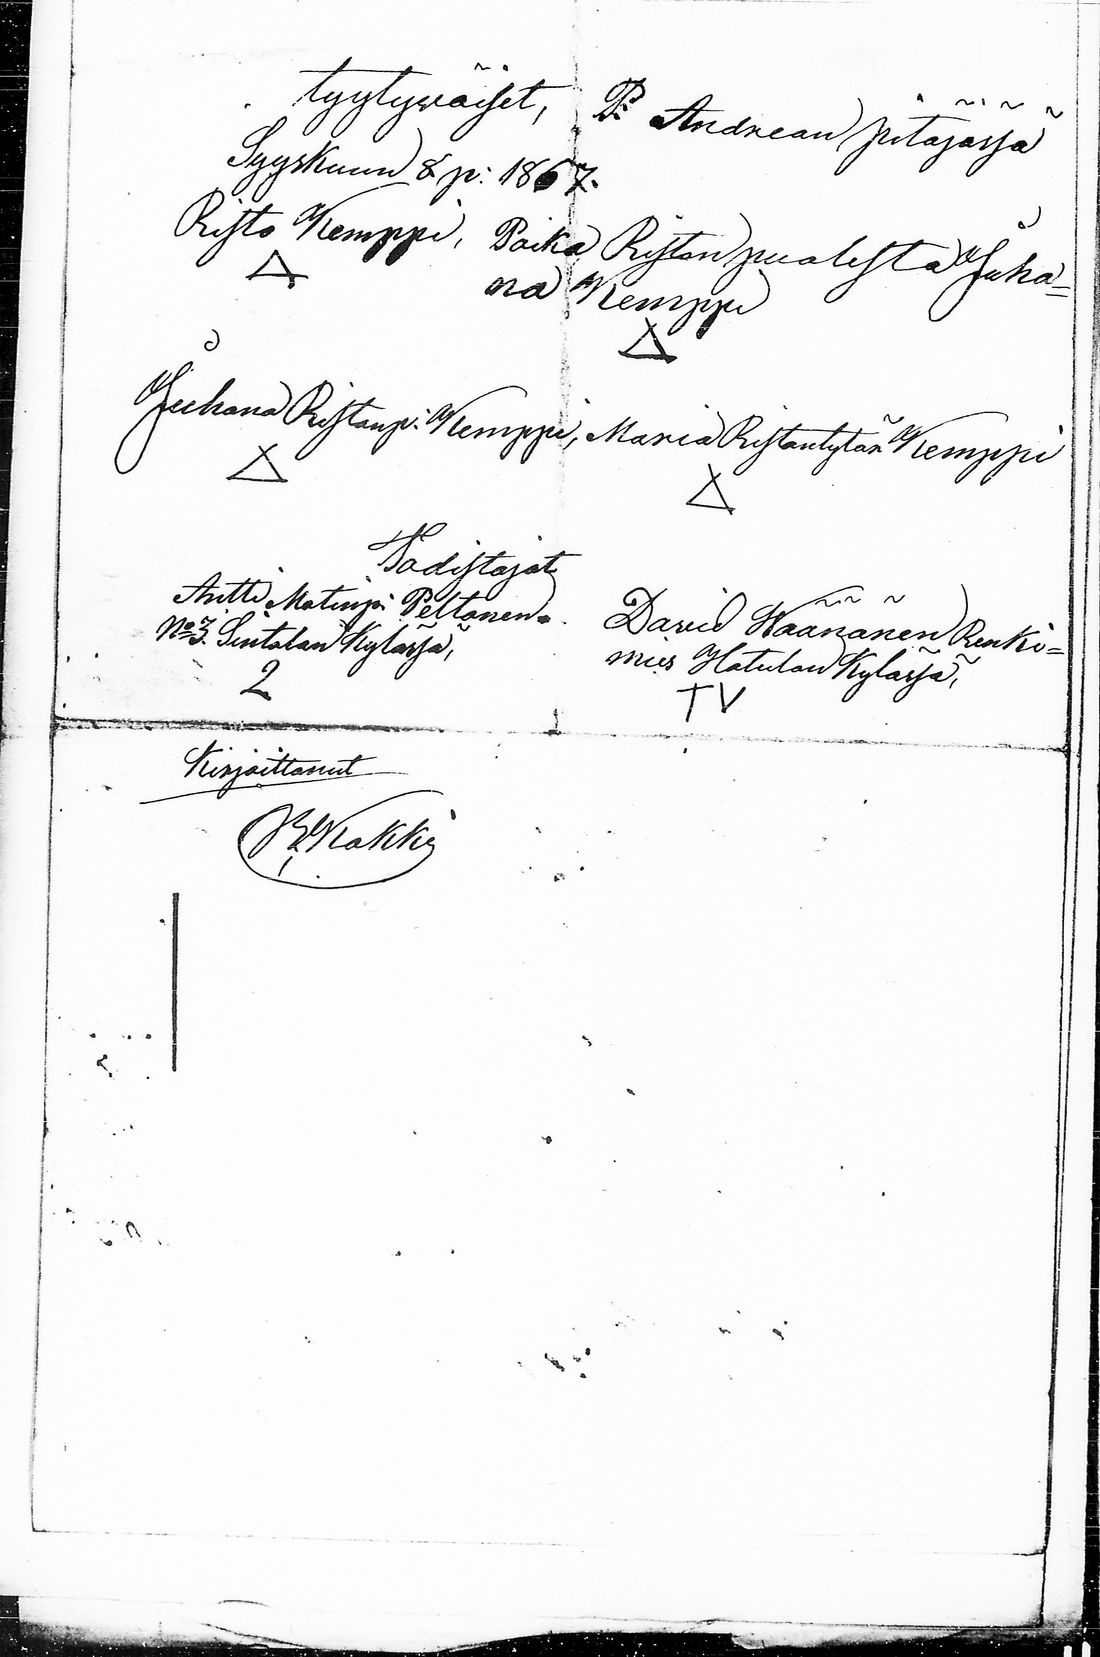 tyytywäiset, P: Andrean pitäjässä
Syyskuun 8 p: 1867.
Risto Kemppi, Poika Ristan puolesta Juha=
na Kemppi
Juhana Ristanp: Kemppi, Maria Ristantytär Kemppi
Todistajat
Antti Matinp: Peltonen.
No 3. Sintalan Kylässä,
2
David Wäänänen Renki=
mies Hatulan Kylässä,
TV
Kirjoittanut
Kokki